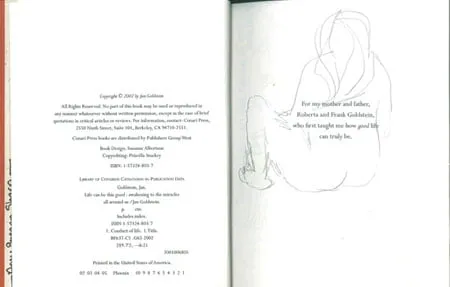 Copyright © 2002 by Jan Goldstein
All Rights Reserved. No part of this book may be used or reproduced in
any manner whatsoever without written permission, except in the case of brief
quotations in critical articles or reviews. For information, contact: Conari Press,
2550 Ninth Street, Suite 101, Berkeley, CA 94710-2551.
Conari Press books are distributed by Publishers Group West
Book Design: Suzanne Albertson
Copyediting: Priscilla Stuckey
ISBN: 1-57324-
Library of Congress Cataloging-in-Publication Data
Goldstein, Jan.
Life can be this good : awakening to the miracles
all around us / Jan Goldstein.
p. cm.
Includes index.
ISBN 1-57324-
1. Conduct of life. I. Title.
2002
Printed in the United States of America.
02 03 04 05 Phoenix 10 9 8 7 6 5 4 3 2 1
For my mother and father,
Roberta and Frank Goldstein,
who first taught me how good life
can truly be.